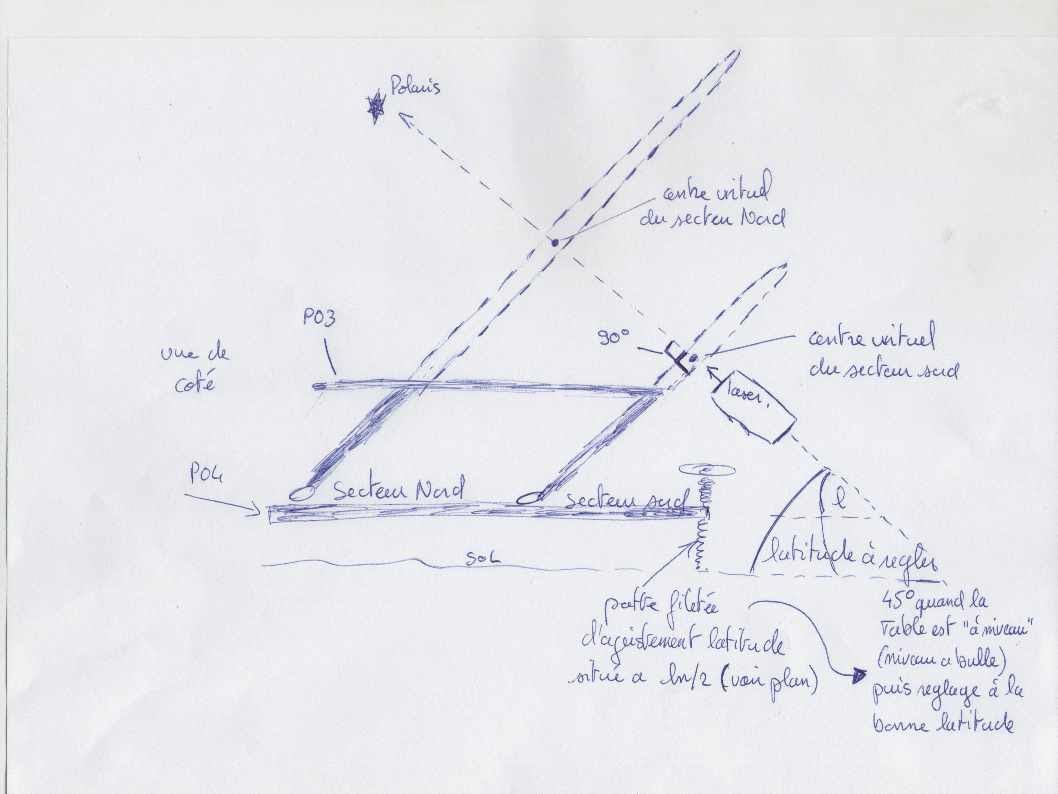 Polaris
centre virtuel
du secteur Nord
P03
90°
vue de
coté
centre virtuel
du secteur sud
laser.
P04
Secteur Nord
secteur sud
l
latitude à régler
SOL
patte filetée
d'ajustement latitude
située a ln/2 (voir plan)
45° quand la
Table est "à niveau"
(niveau a bulle)
puis reglage à la
bonne latitude